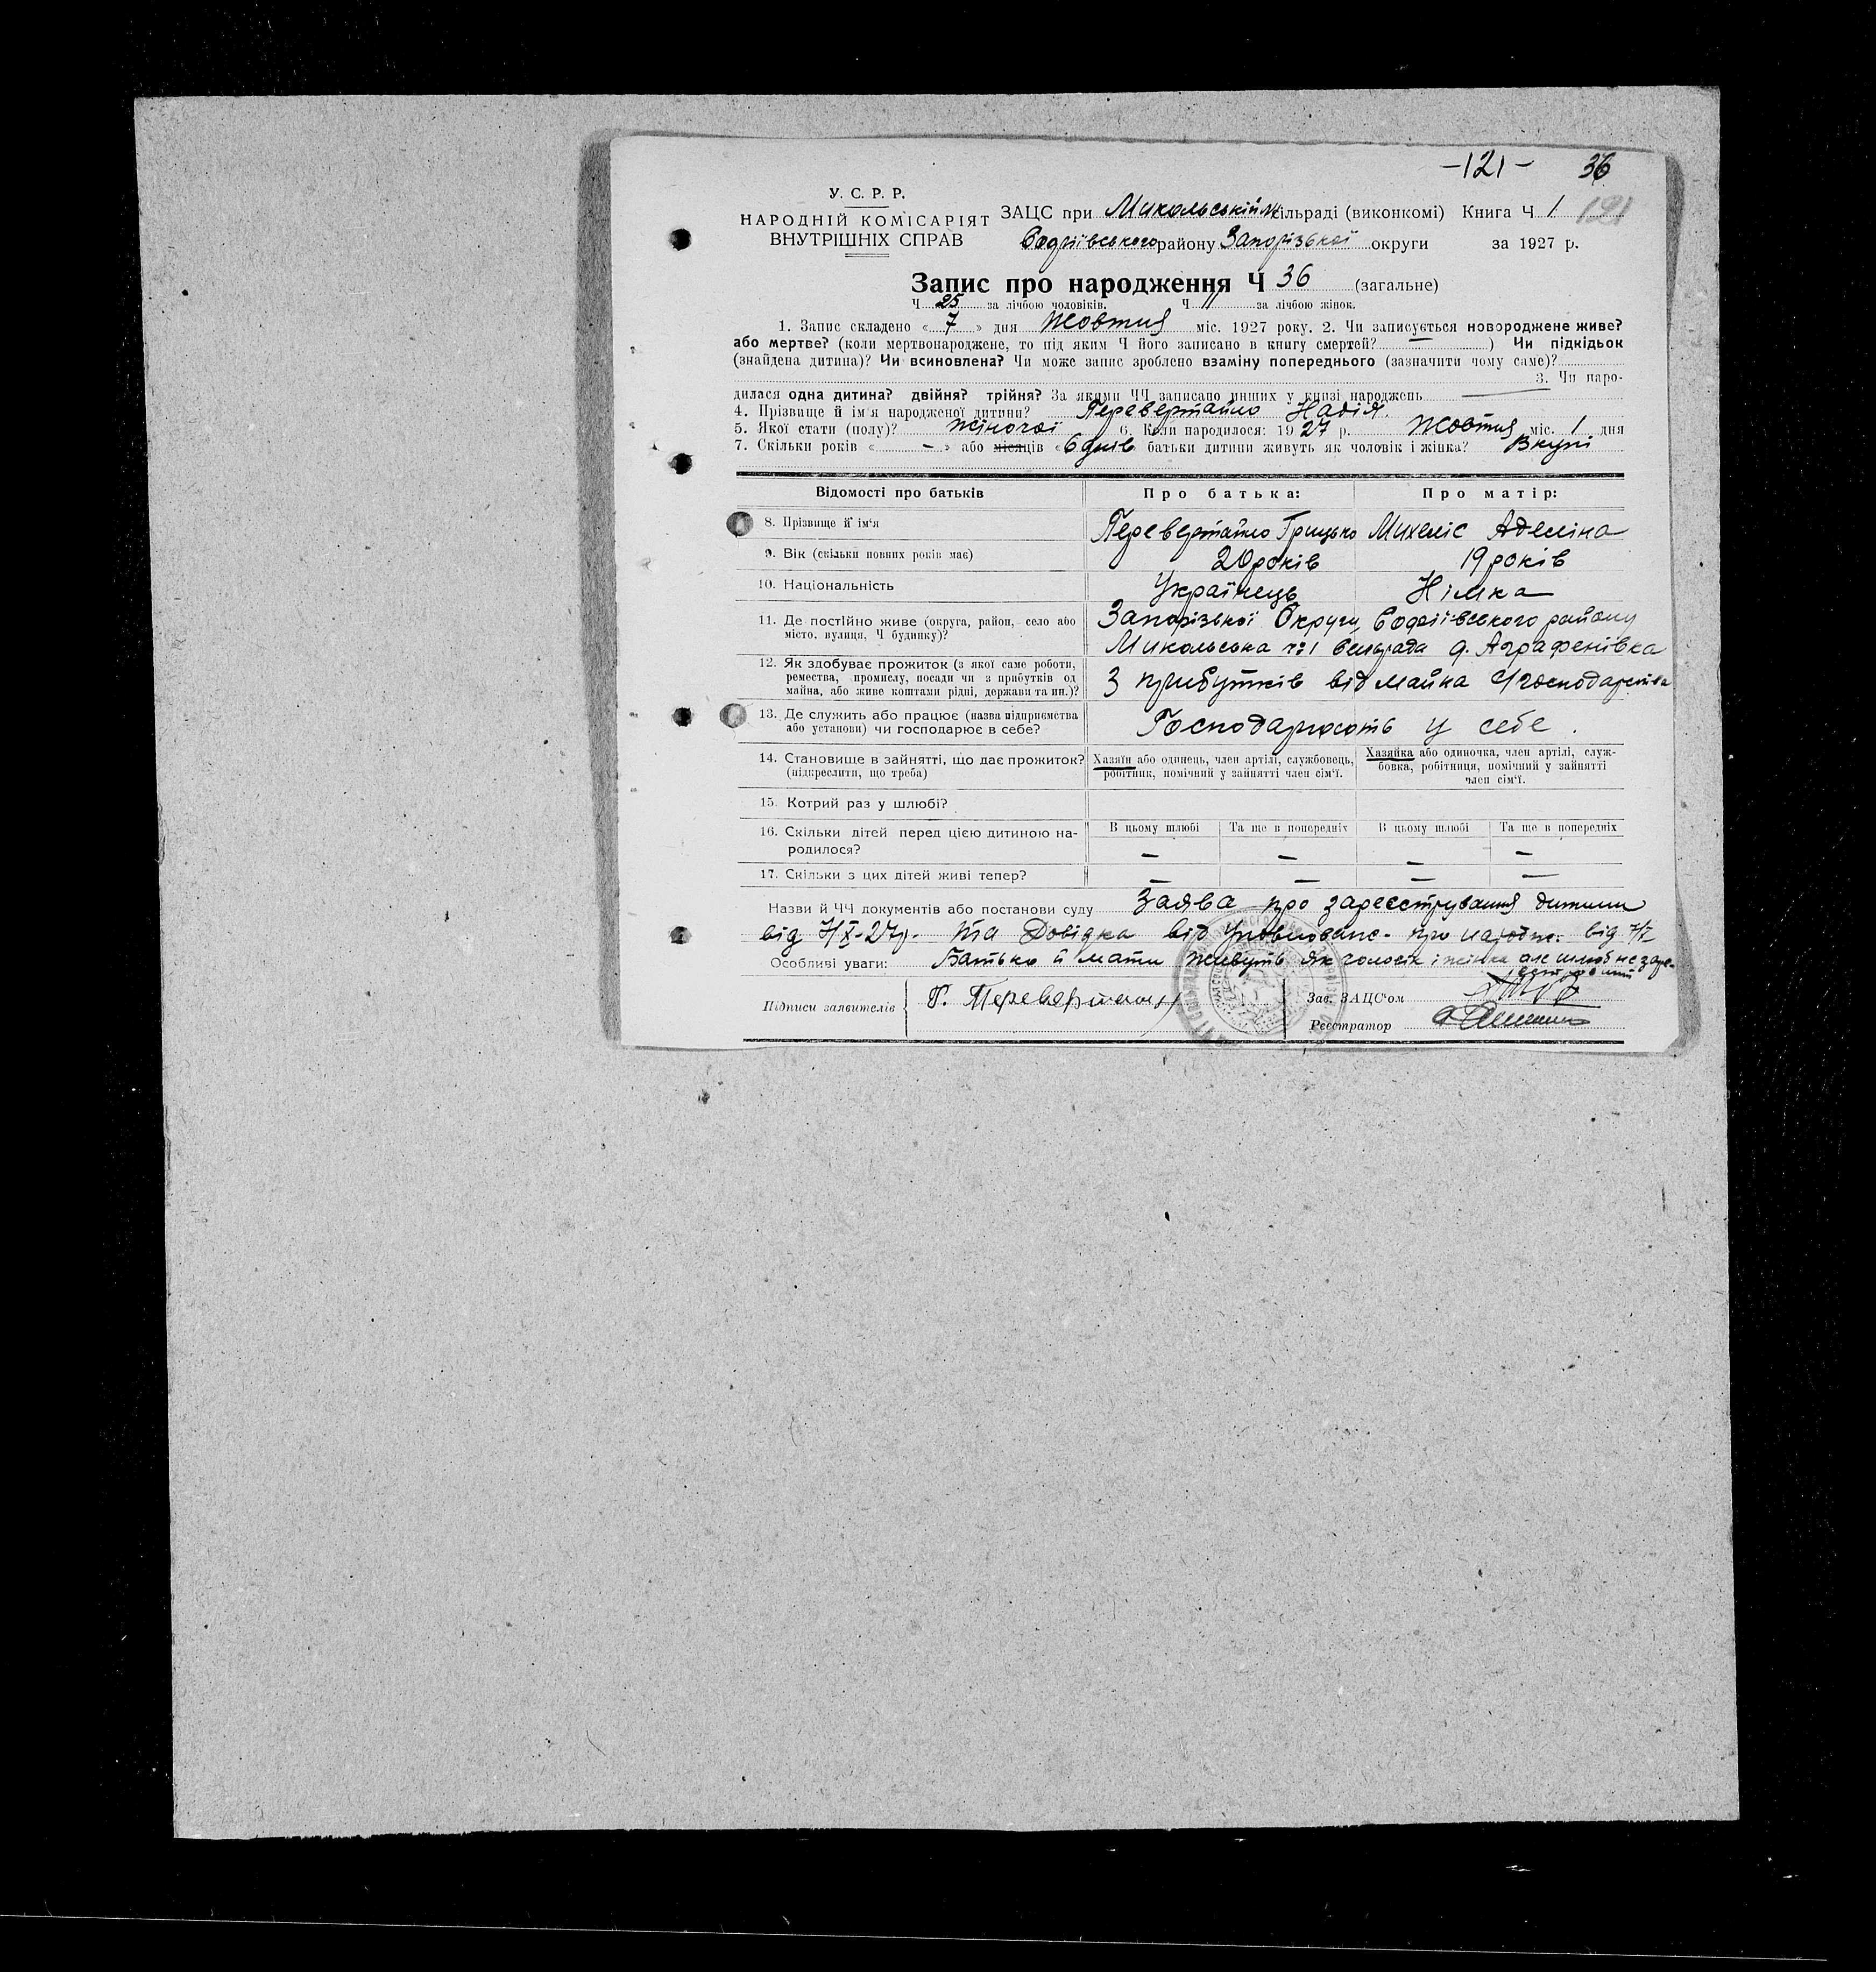 -121- 36
У. С. Р. Р.
НАРОДНІЙ КОМІСАРІЯТ
ВНУТРІШНІХ СПРАВ
ЗАЦС при Микольській сільраді (виконкомі) Книга Ч 1 121
Софіївського району Запорізької округи за 1927 р.
Запис про народження Ч 36 (загальне)
Ч 25 за лічбою чоловіків. Ч 11 за лічбою жінок.
1. Запис складено « 7 » дня Жовтня міс. 1927 року. 2. Чи записується новороджене живе?
або мертве? (коли мертвонароджене, то під яким Ч його записано в книгу смертей? — ) Чи підкідьок
(знайдена дитина)? Чи всиновлена? Чи може запис зроблено взаміну попереднього (зазначити чому саме)?
3. Чи наро-
дилася одна дитина? двійня? трійня? За якими ЧЧ записано инших у книзі народжень —
4. Прізвище й ім'я народженої дитини? Перевертайло Надія.
5. Якої стати (полу)? жіночої 6. Коли народилося: 1927 р. Жовтня міс. 1 дня
7. Скільки років « - » або місяців « 6 днів » батьки дитини живуть як чоловік і жінка? Вкупі
Відомості про батьків Про батька: Про матір:
8. Прізвище й ім'я Перевертайло Грицько Михеліс Аделіна
9. Вік (скільки повних років має) 20 років 19 років
10. Національність Українець Німка
11. Де постійно живе (округа, район, село або Запорізької Округи Софіївського району
місто, вулиця, Ч будинку)? Микольська №1 сельрада д. Аграфенівка
12. Як здобуває прожиток (з якої саме роботи,
ремества, промислу, посади чи з прибутків од З прибутків від майна Господарства
майна, або живе коштами рідні, держави та ин.)?
13. Де служить або працює (назва підприємства Господарюють у себе.
або установи) чи господарює в себе?
14. Становище в зайнятті, що дає прожиток? Хазяїн або одинець, член артілі, службовець, Хазяйка або одиночка, член артілі, служ-
(підкреслити, що треба) робітник, помічний у зайнятті член сім'ї. бовка, робітниця, помічний у зайнятті
член сім'ї.
15. Котрий раз у шлюбі?
16. Скільки дітей перед цією дитиною на- В цьому шлюбі Та ще в попередніх В цьому шлюбі Та ще в попередніх
родилося? — — — —
17. Скільки з цих дітей живі тепер? — — — —
Назви й ЧЧ документів або постанови суду Заява про зареєстрування дитини
від 7/X-27р. та Довідка від Уповноважс. про народж. від 7/X
Особливі уваги: Батько й мати живуть як чоловік і жінка але шлюб не заре-
єстрований
Підписи заявителів Г. Перевертайло
Зав. ЗАЦС'ом
Реєстратор